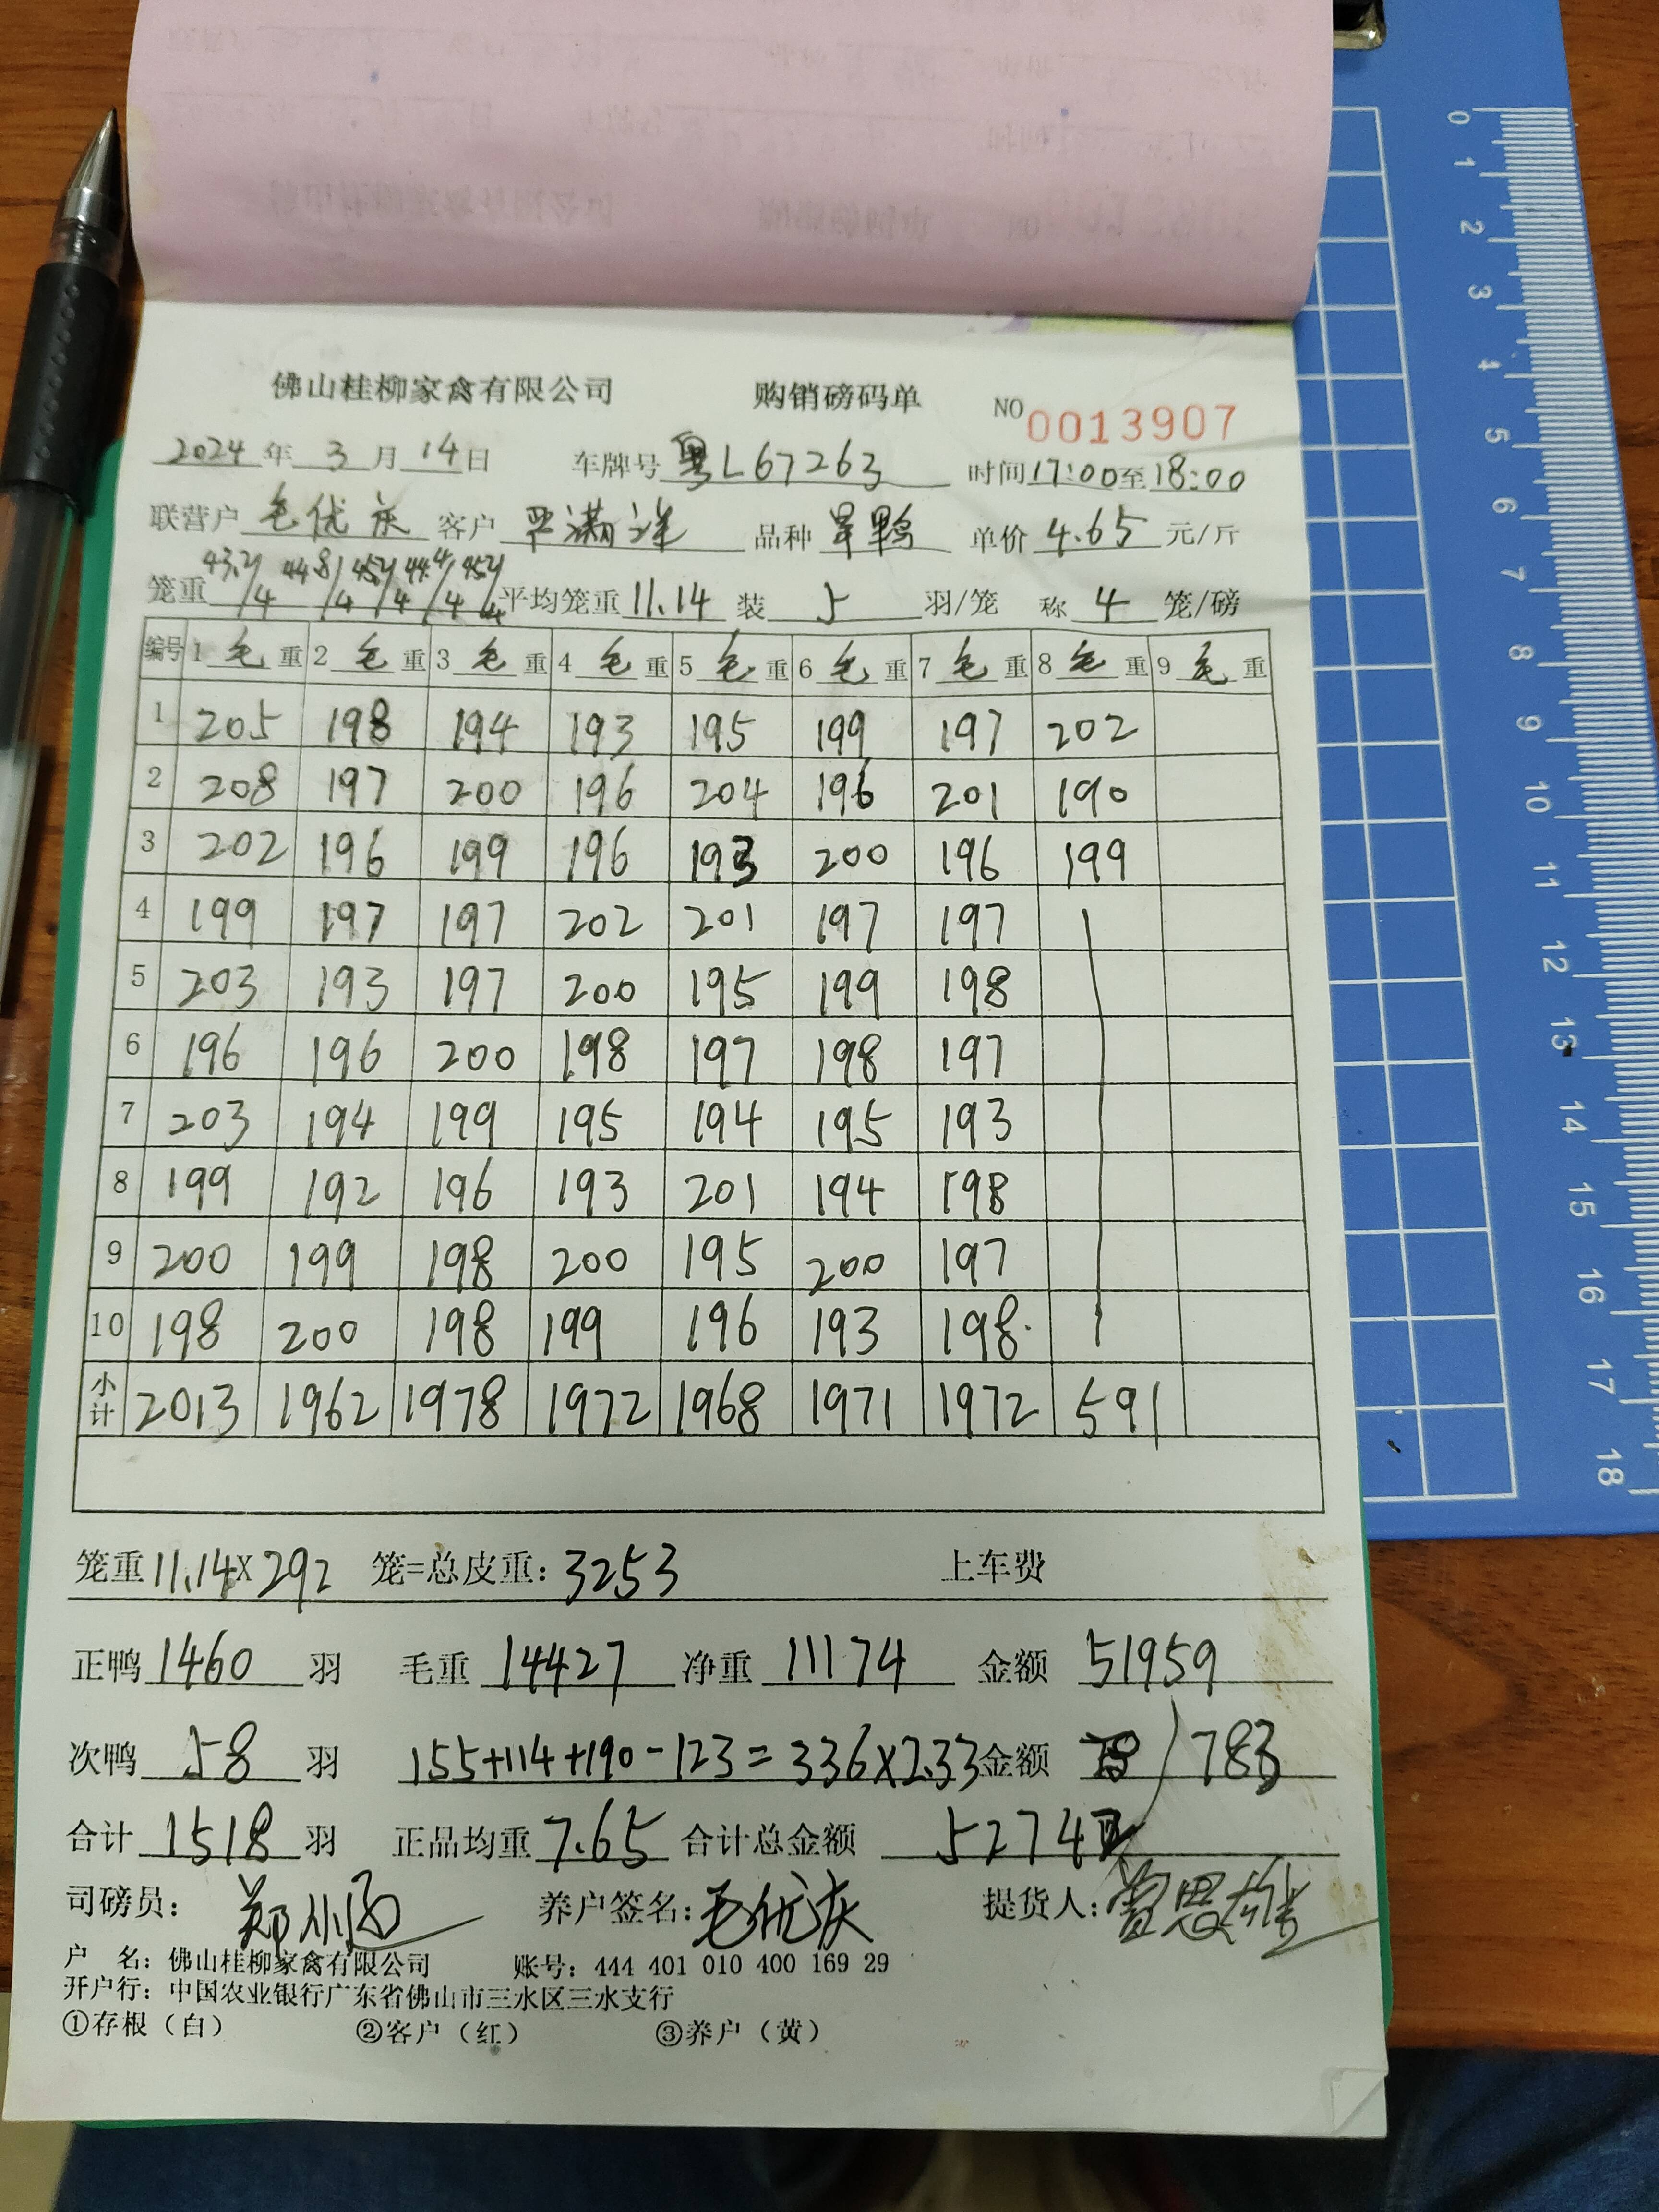 佛山桂柳家禽有限公司 购销磅码单 NO 0013907
2024年 3月 14日 车牌号 粤L67263 时间17:00至18:00
联营户 毛优庆 客户 满 品种 旱鸭 单价 4.65 元/斤
笼重 43.2/4 44.8/4 45.2/4 44.4/4 45.2/4 平均笼重 11.14 装 5 羽/笼 称 4 笼/磅
编号 1毛重 2毛重 3毛重 4毛重 5毛重 6毛重 7毛重 8毛重 9毛重
1 205 198 194 193 195 199 197 202
2 208 197 200 196 204 196 201 190
3 202 196 199 196 193 200 196 199
4 199 197 197 202 201 197 197
5 203 193 197 200 195 199 198
6 196 196 200 198 197 198 197
7 203 194 199 195 194 195 193
8 199 192 196 193 201 194 198
9 200 199 198 200 195 200 197
10 198 200 198 199 196 193 198
小计 2013 1962 1978 1972 1968 1971 1972 591
笼重11.14×292 笼=总皮重：3253 上车费
正鸭 1460 羽 毛重 14427 净重 11174 金额 51959
次鸭 58 羽 155+114+190-123=336×2.33 金额 783
合计 1518 羽 正品均重 7.65 合计总金额 52742
司磅员： 郑 养户签名：毛优庆 提货人：曾思雄
户 名：佛山桂柳家禽有限公司 账号：444 401 010 400 169 29
开户行：中国农业银行广东省佛山市三水区三水支行
①存根（白） ②客户（红） ③养户（黄）
0 1 2 3 4 5 6 7 8 9 10 11 12 13 14 15 16 17 18